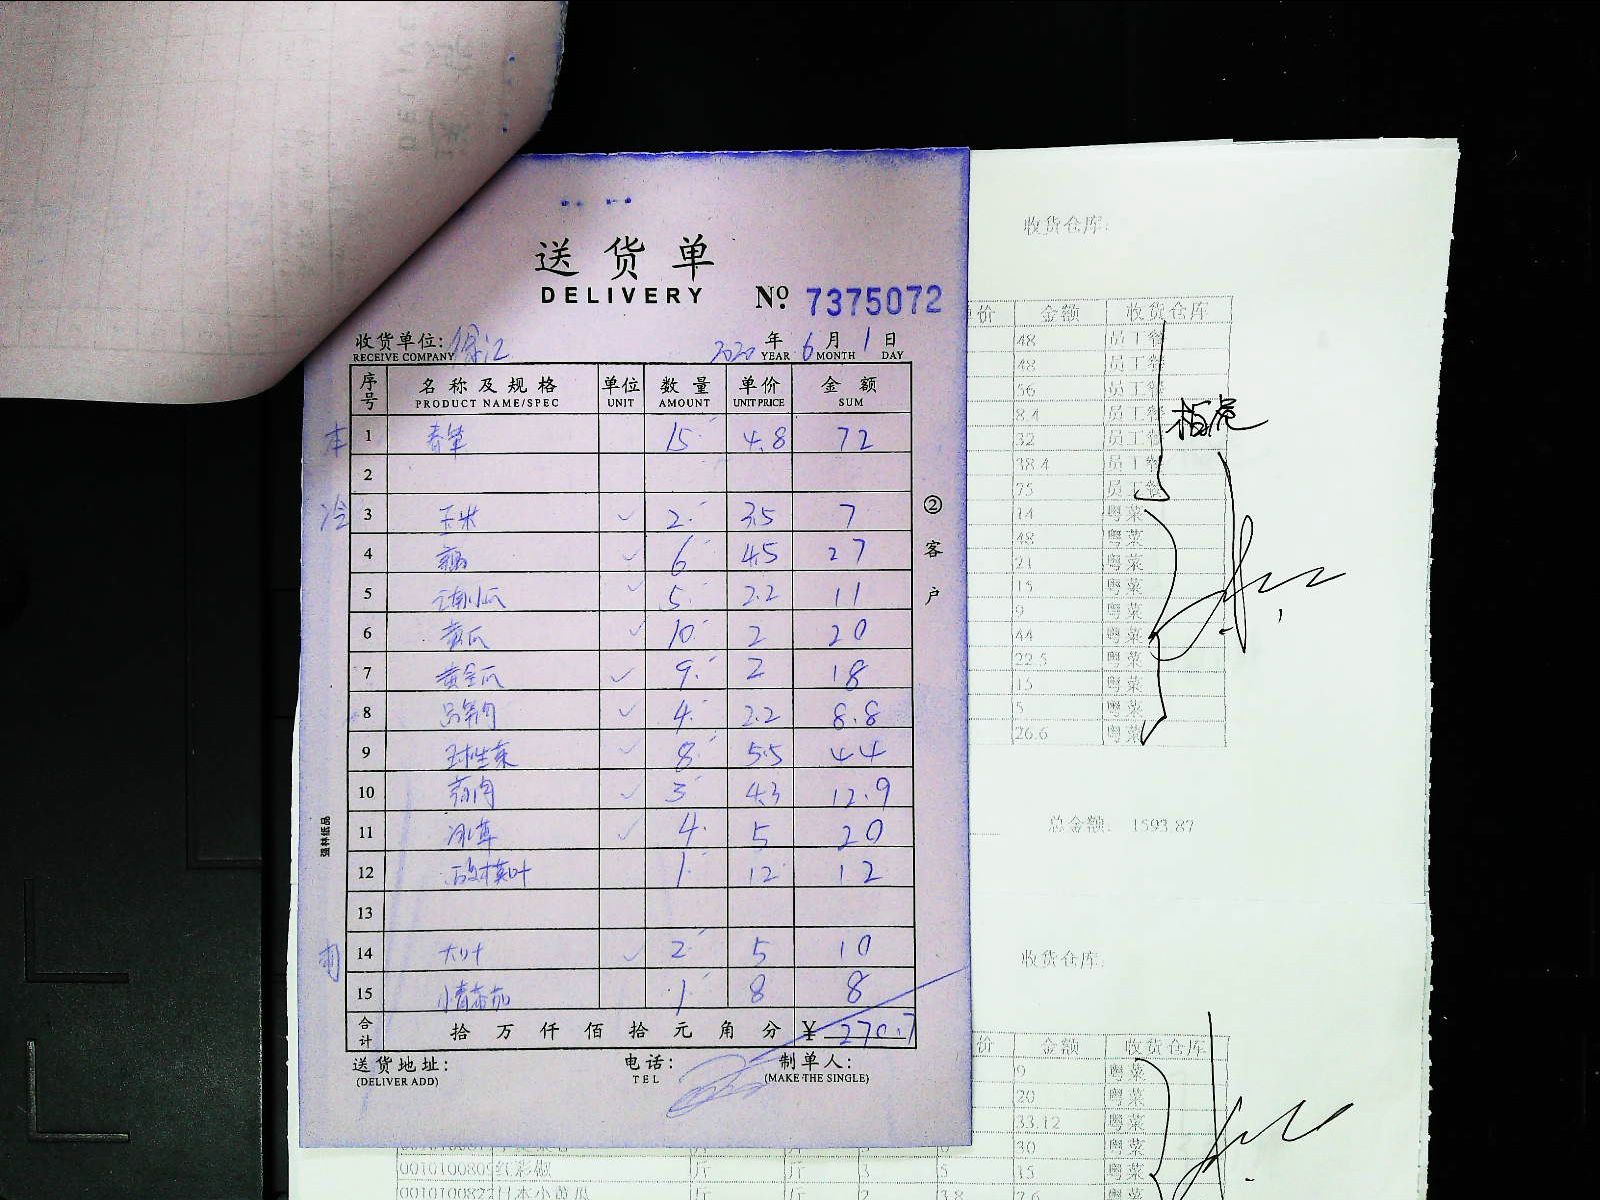 送货单
DELIVERY
№ 7375072
收货单位: 徐汇 2020 年 6 月 1 日
RECEIVE COMPANY YEAR MONTH DAY
序号 名称及规格 单位 数量 单价 金额
PRODUCT NAME/SPEC UNIT AMOUNT UNIT PRICE SUM
1 春笋 15 4.8 72
2
冷 3 玉米 ✓ 2 3.5 7
4 ✓ 6 4.5 27
5 ✓ 5 2.2 11
6 黄瓜 ✓ 10 2 20
7 黄金瓜 ✓ 9 2 18
8 ✓ 4 2.2 8.8
9 球生菜 ✓ 8 5.5 44
10 ✓ 3 4.3 12.9
11 冰草 ✓ 4 5 20
12 1 12 12
13
14 大叶 ✓ 2 5 10
15 小青番茄 1 8 8
合计 拾 万 仟 佰 拾 元 角 分 ¥ 270.7
送货地址: 电话: 制单人:
(DELIVER ADD) TEL (MAKE THE SINGLE)
②客户
强林纸品
收货仓库:
价 金额 收货仓库
48 员工餐
48 员工餐
56 员工餐
8.4 员工餐
32 员工餐
38.4 员工餐
75 员工餐
14 粤菜
48 粤菜
21 粤菜
15 粤菜
9 粤菜
44 粤菜
22.5 粤菜
15 粤菜
5 粤菜
26.6 粤菜
总金额: 1593.87
收货仓库:
价 金额 收货仓库
9 粤菜
20 粤菜
33.12 粤菜
30 粤菜
红彩椒 斤 斤 3 5 15 粤菜
日本小黄瓜 斤 斤 2 3.8 7.6 粤菜